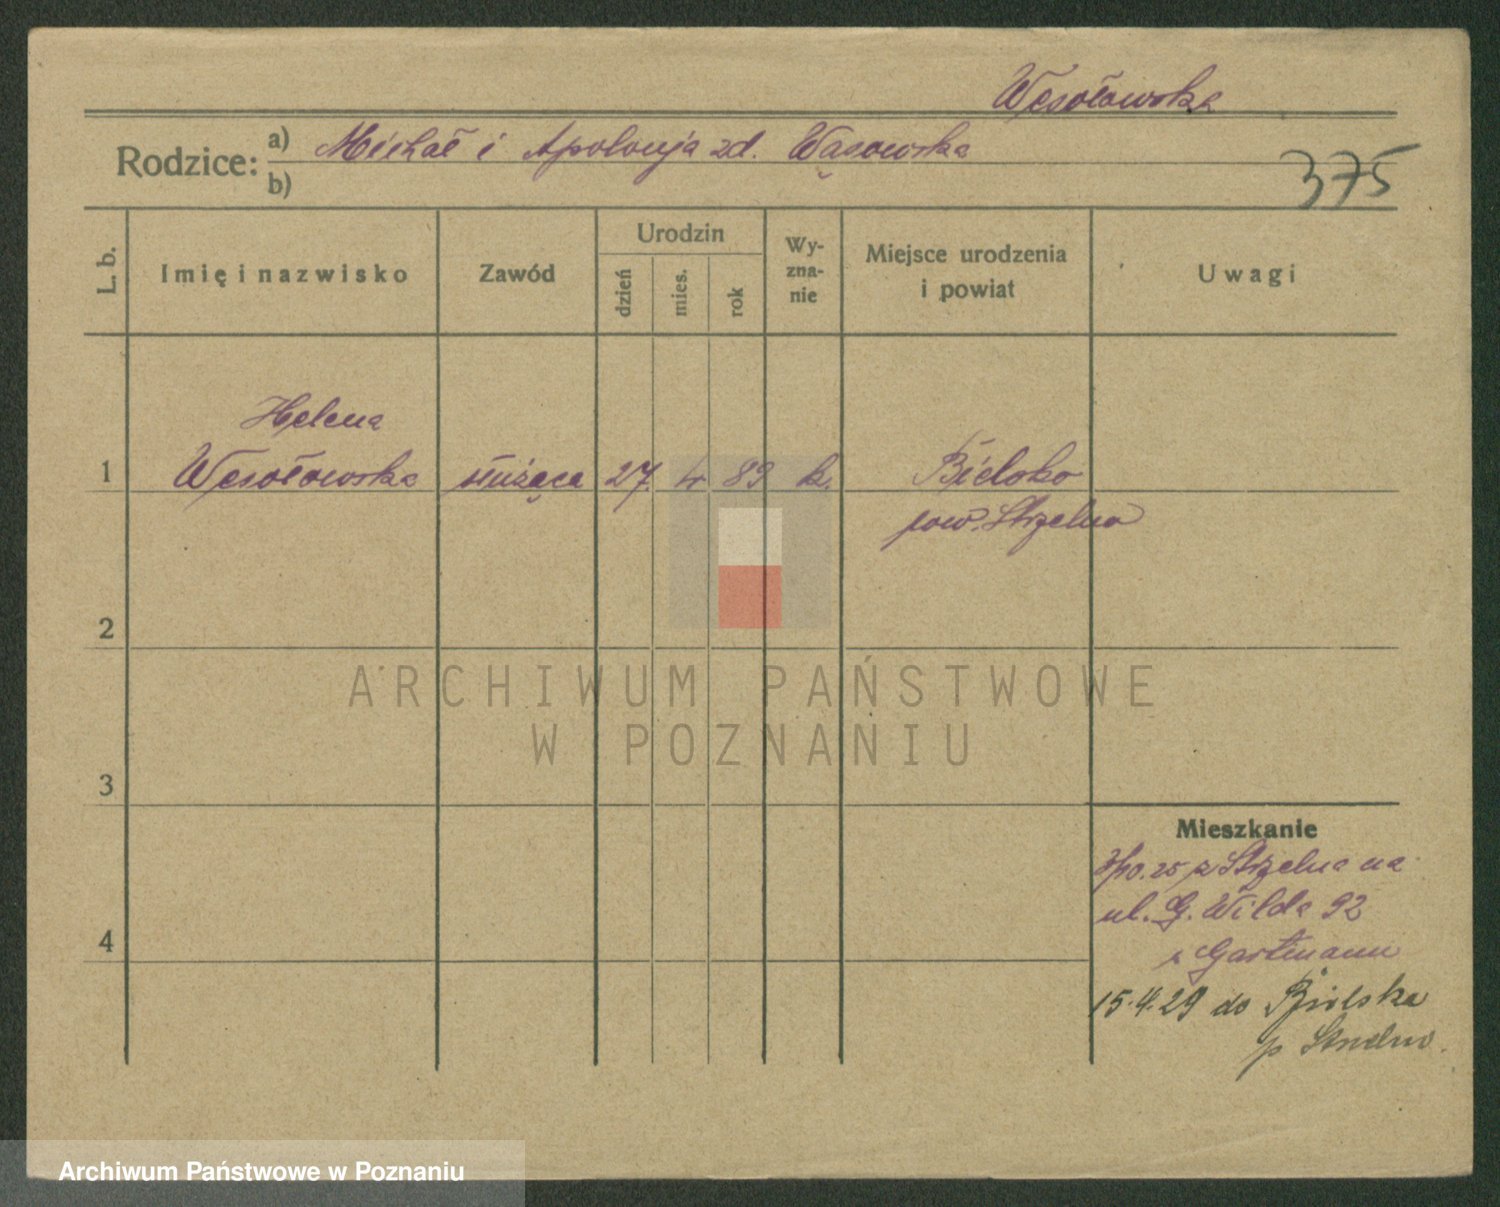 Wesołowska
Rodzice: a) Michał i Apolonja zd. Wąsowska
b)
375
L. b.
Imię i nazwisko
Zawód
Urodzin
dzień
mies.
rok
Wy-
zna-
nie
Miejsce urodzenia
i powiat
Uwagi
Helena
1 Wesołowska służąca 27. 4 89 k. Bielsko
pow. Strzelno
2
3
4
ARCHIWUM PAŃSTWOWE
W POZNANIU
Mieszkanie
z Strzelna na
ul. G. Wilda 92
Gartmann
15.4.29 do Bielska
p Strzelno.
Archiwum Państwowe w Poznaniu